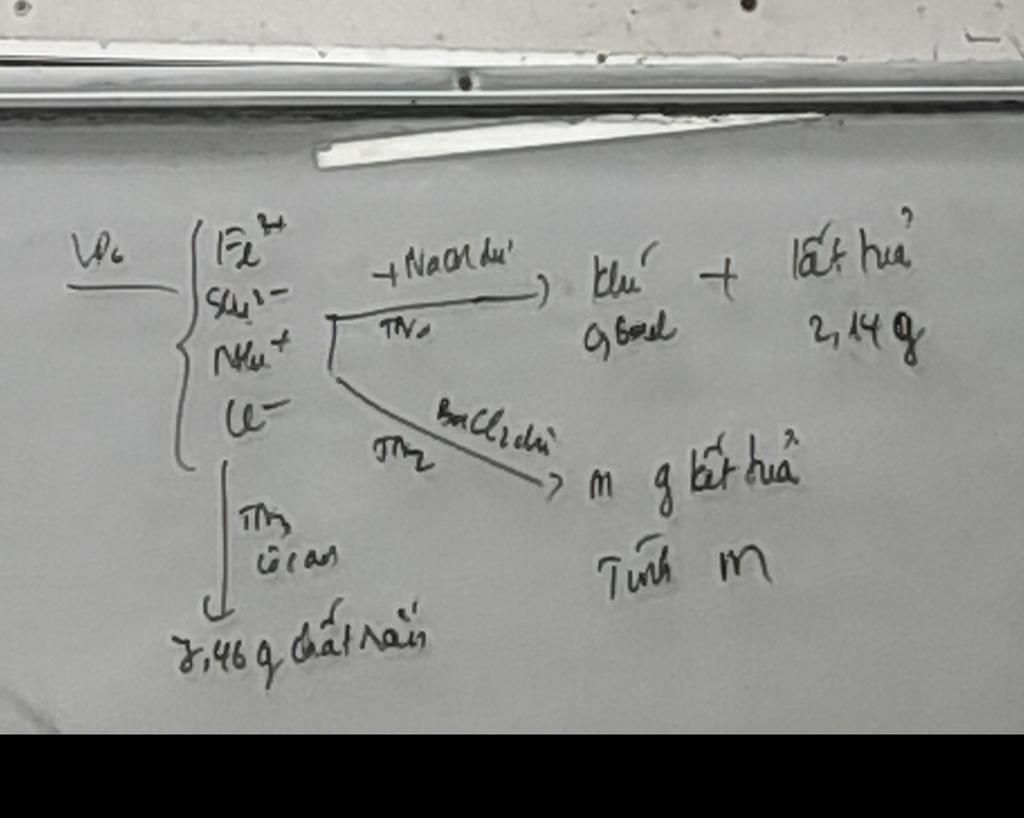 Fe³⁺
SO₄²⁻
NH₄⁺
Cl⁻
+ NaOH dư
TN₁
khí + kết tủa
2,14 g
BaCl₂ dư
TN₂
m g kết tủa
Tính m
TN₃
cô cạn
7,46 g chất rắn